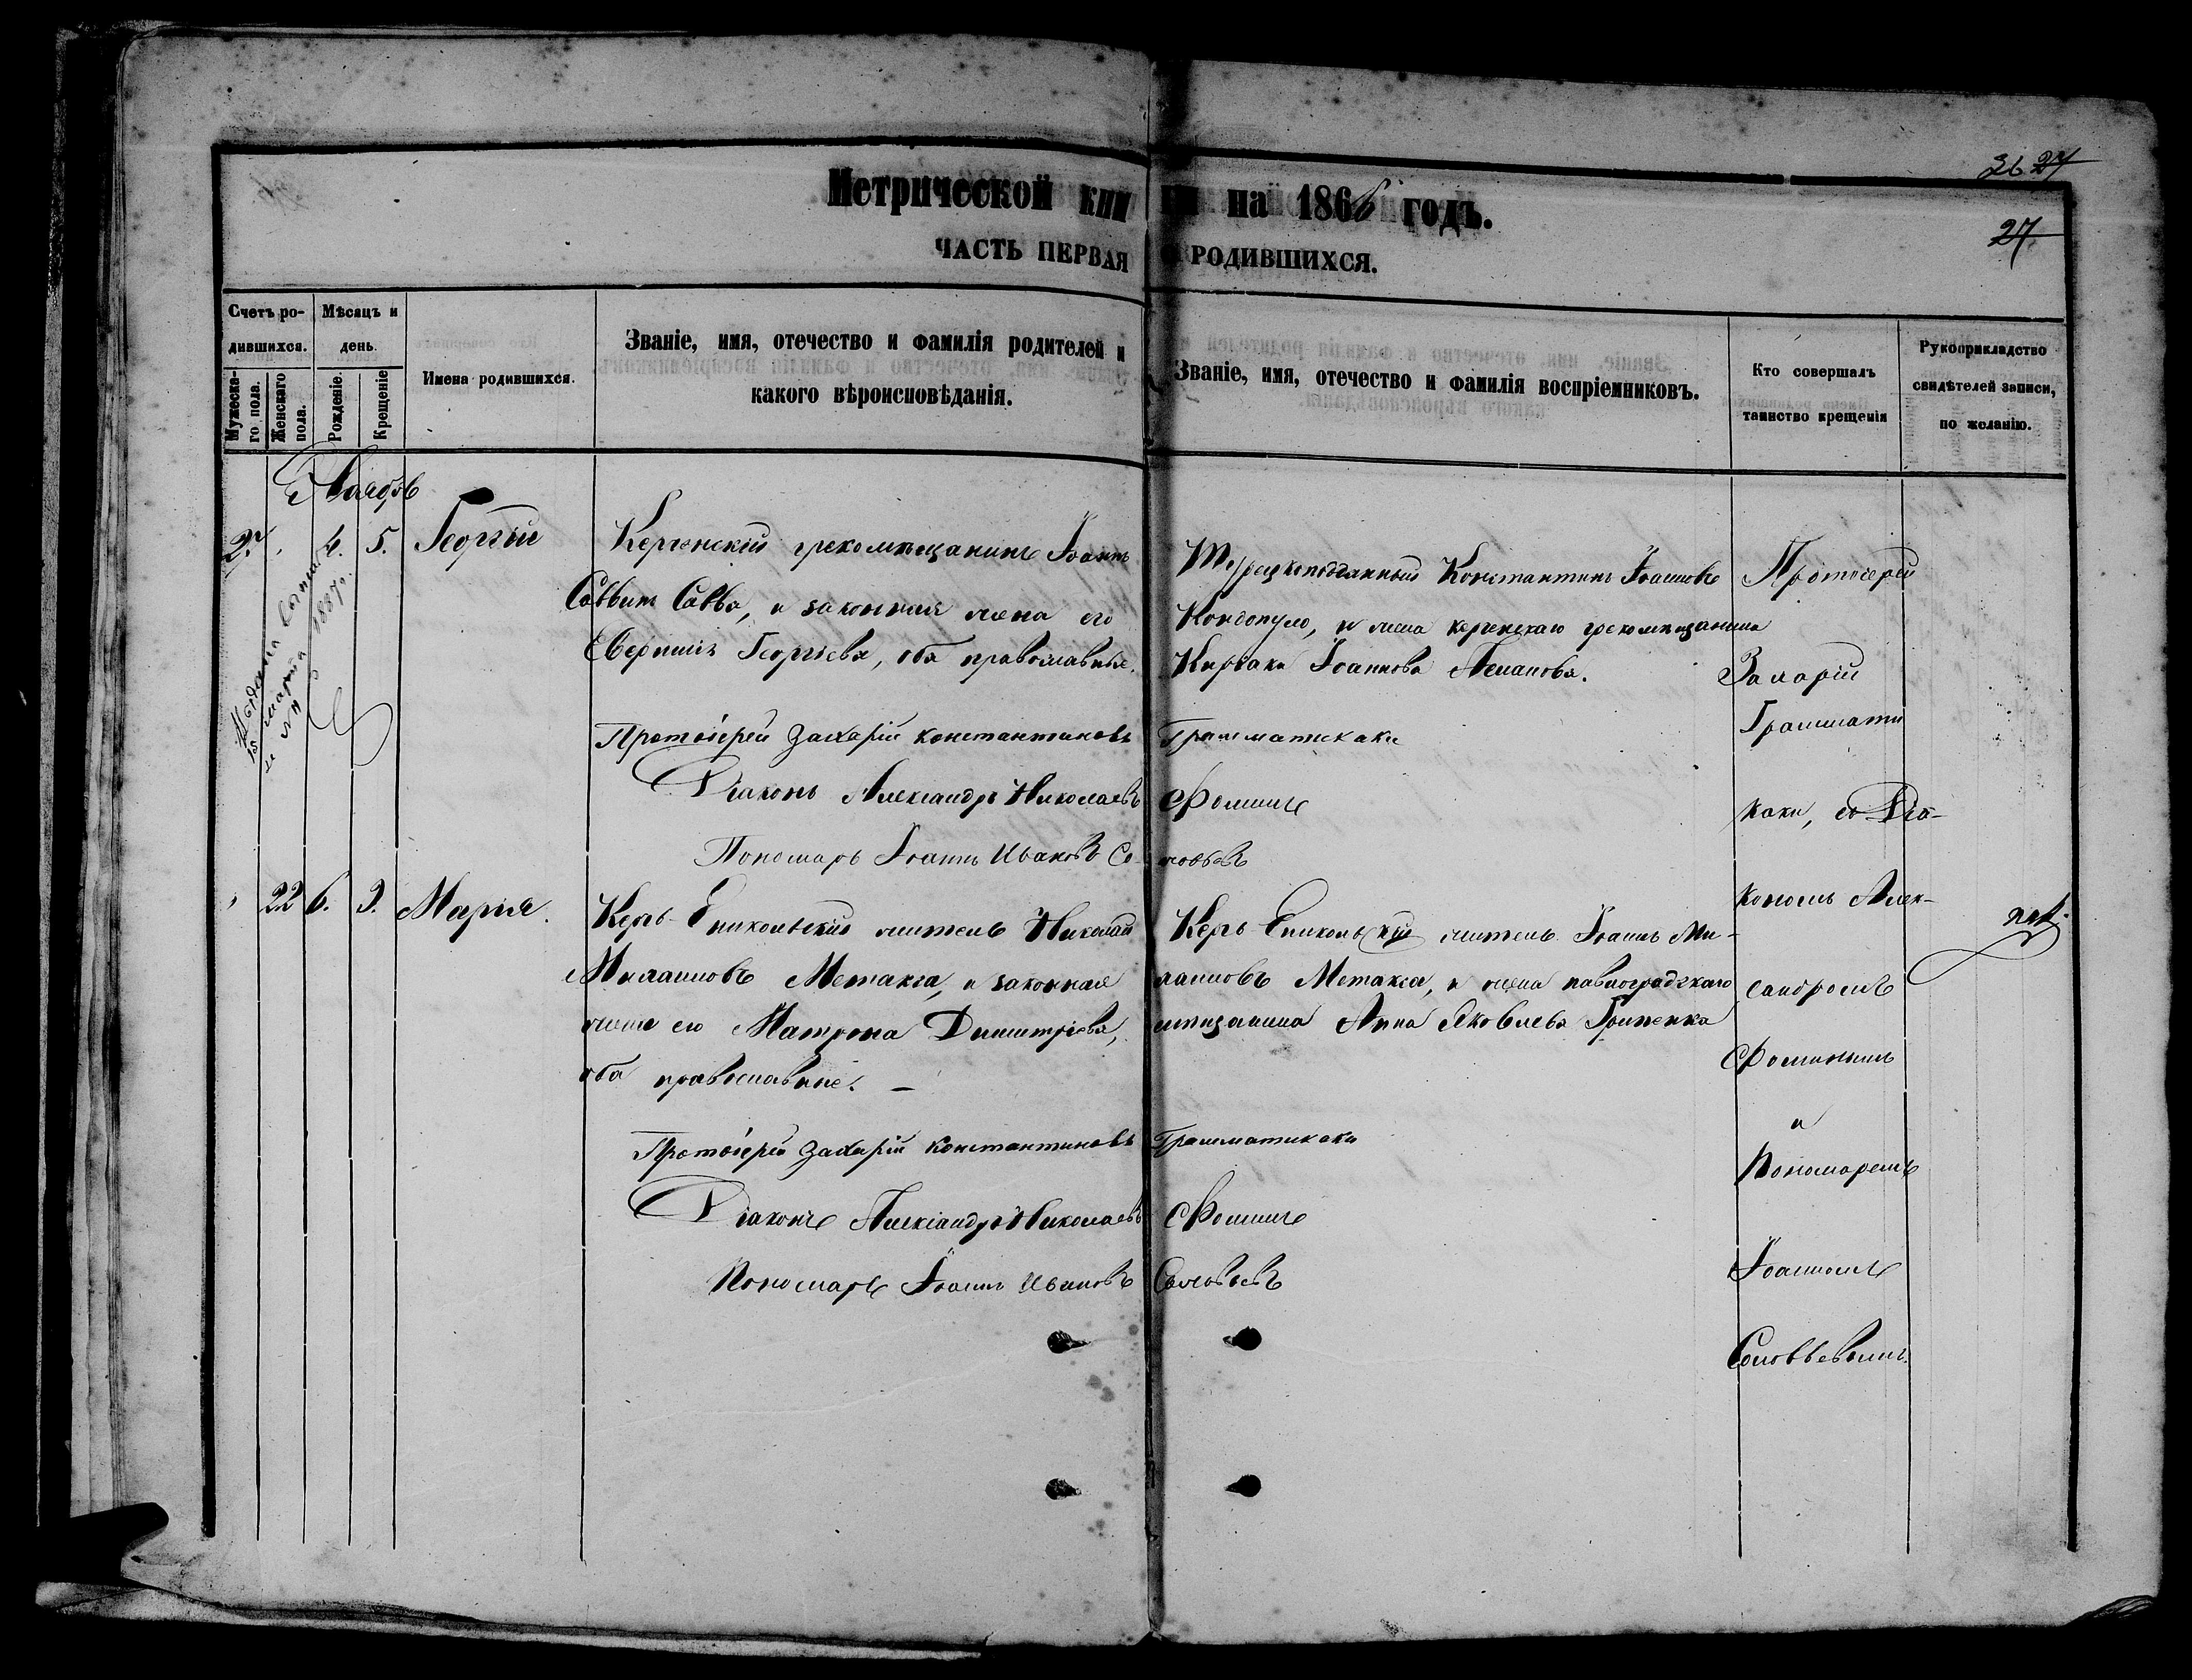 36 27
Метрической книги на 1866 годъ.
27
ЧАСТЬ ПЕРВАЯ О РОДИВШИХСЯ.
Счетъ ро-
дившихся.
Мужеска-
го пола.
Женскаго
пола.
Мѣсяцъ и
день.
Рожденіе.
Крещеніе
Имена родившихся.
Званіе, имя, отечество и фамилія родителей и
какого вѣроисповѣданія.
Званіе, имя, отечество и фамилія воспріемниковъ.
Кто совершалъ
таинство крещенія
Рукоприкладство
свидѣтелей записи,
по желанію.
Ноябрь
4. 5. Георгій
Керченскій грекомѣщанинъ Іоаннъ
Саввинъ Савва, и законная жена его
Георгіева, оба православные.
Турецкоподданный Константинъ Іоанновъ
Кондопуло, и жена керченскаго грекомѣщанина
Киріаки Іоаннова
Протоіерей Захарій Константиновъ Грамматикаки
Діаконъ Александръ Николаевъ Фоминъ
Пономарь Іоаннъ Ивановъ Соловьевъ
22 6. 9. Марія.
Керчь-Еникольскій житель Николай
Милановъ Метакса, и законная
жена его Матрона Димитріева,
оба православные. —
Керчь-Еникольскій житель Іоаннъ Ми-
лановъ Метакса, и жена павлоградскаго
мѣщанина Анна Яковлева Гриценка
Протоіерей Захарій Константиновъ Грамматикаки
Діаконъ Александръ Николаевъ Фоминъ
Пономарь Іоаннъ Ивановъ Соловьевъ
Протоіерей
Захарій
Граммати
каки, съ Діа-
кономъ Алек-
сандромъ
Фоминымъ
и
Пономаремъ
Іоанномъ
Соловьевымъ.